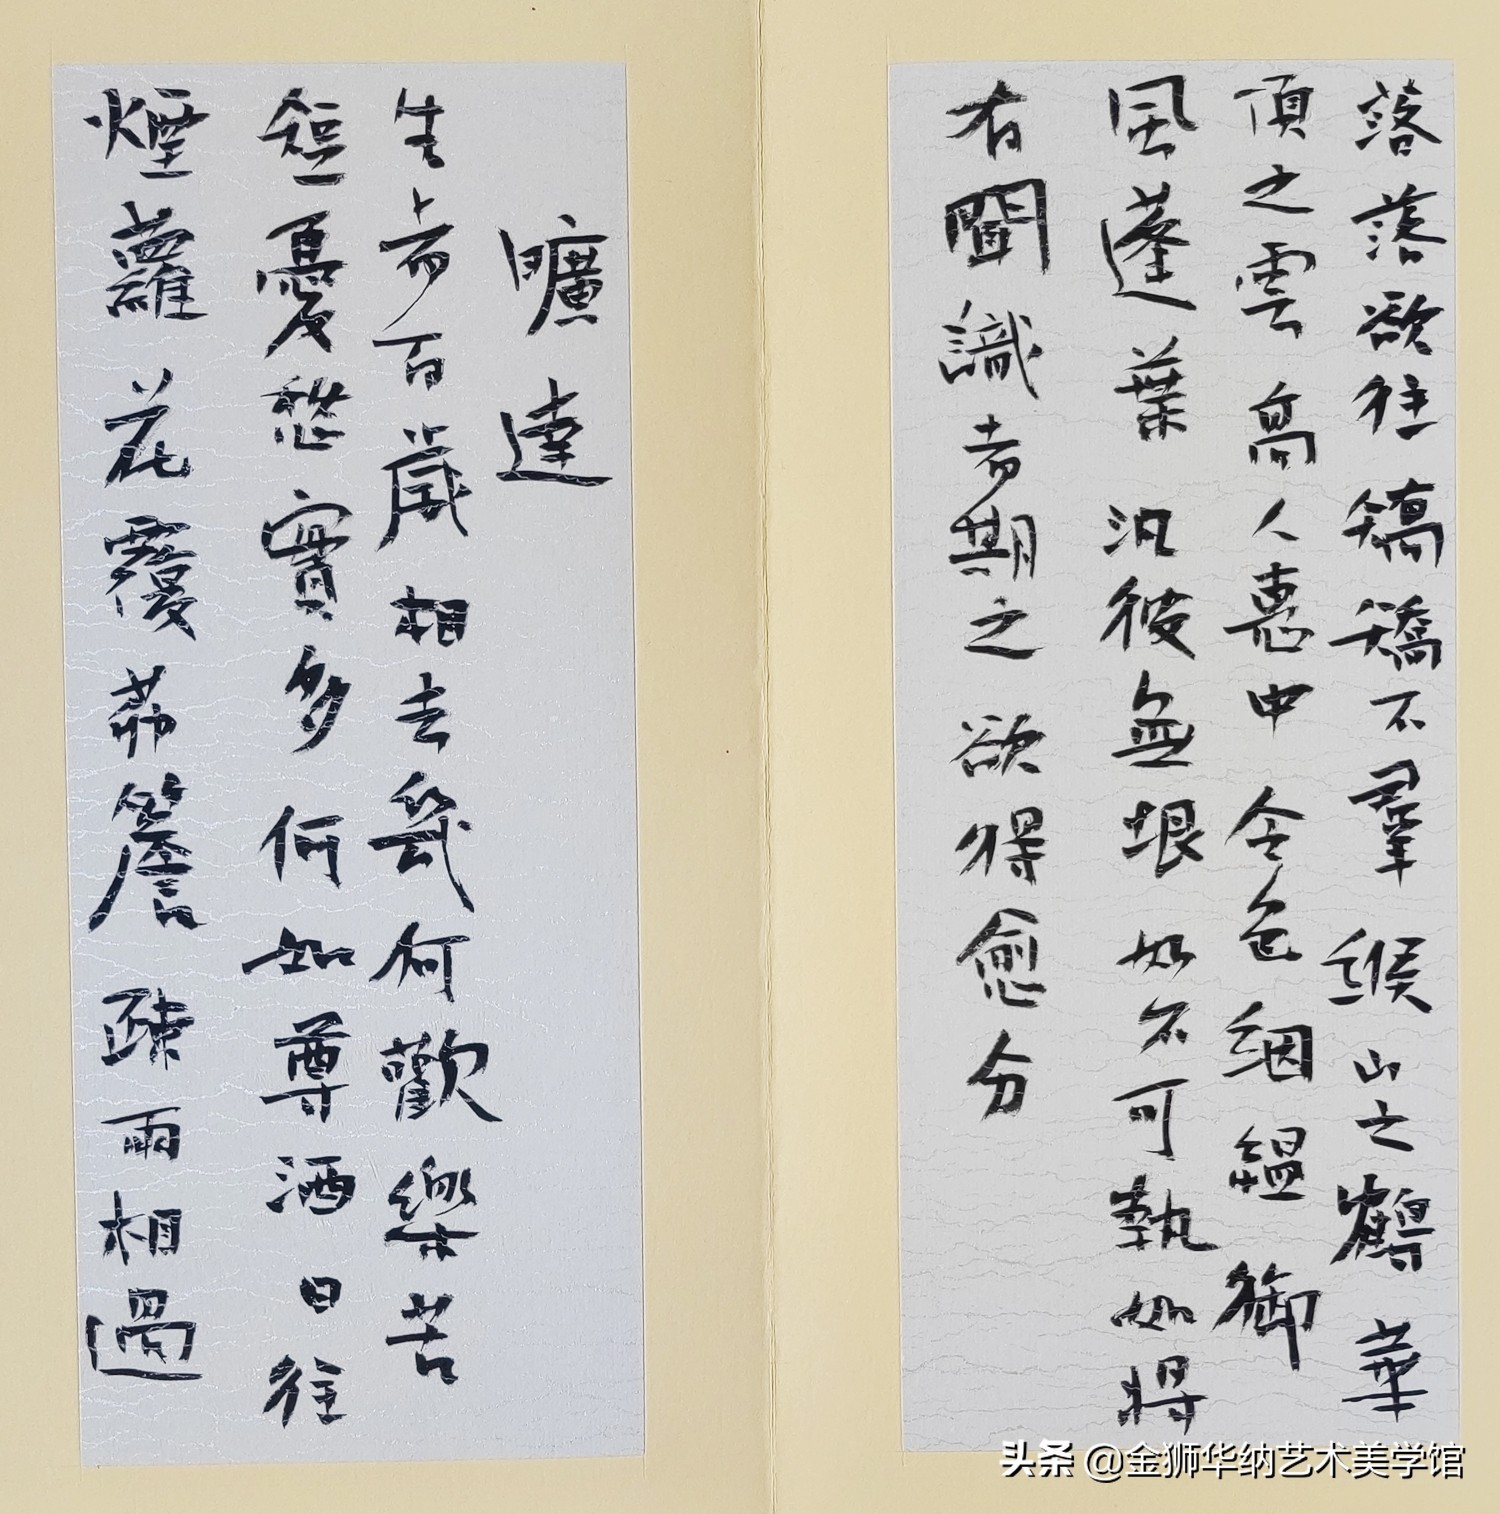 落落欲往矯矯不羣緱山之鶴華
頂之雲高人惠中令色絪縕御
風蓬葉汎彼無垠如不可執如將
有聞識者期之欲得愈分
曠達
生者百歲相去幾何歡樂苦
短憂愁實多何如尊酒日往
煙蘿花覆茆簷疎雨相過
头条 @金狮华纳艺术美学馆